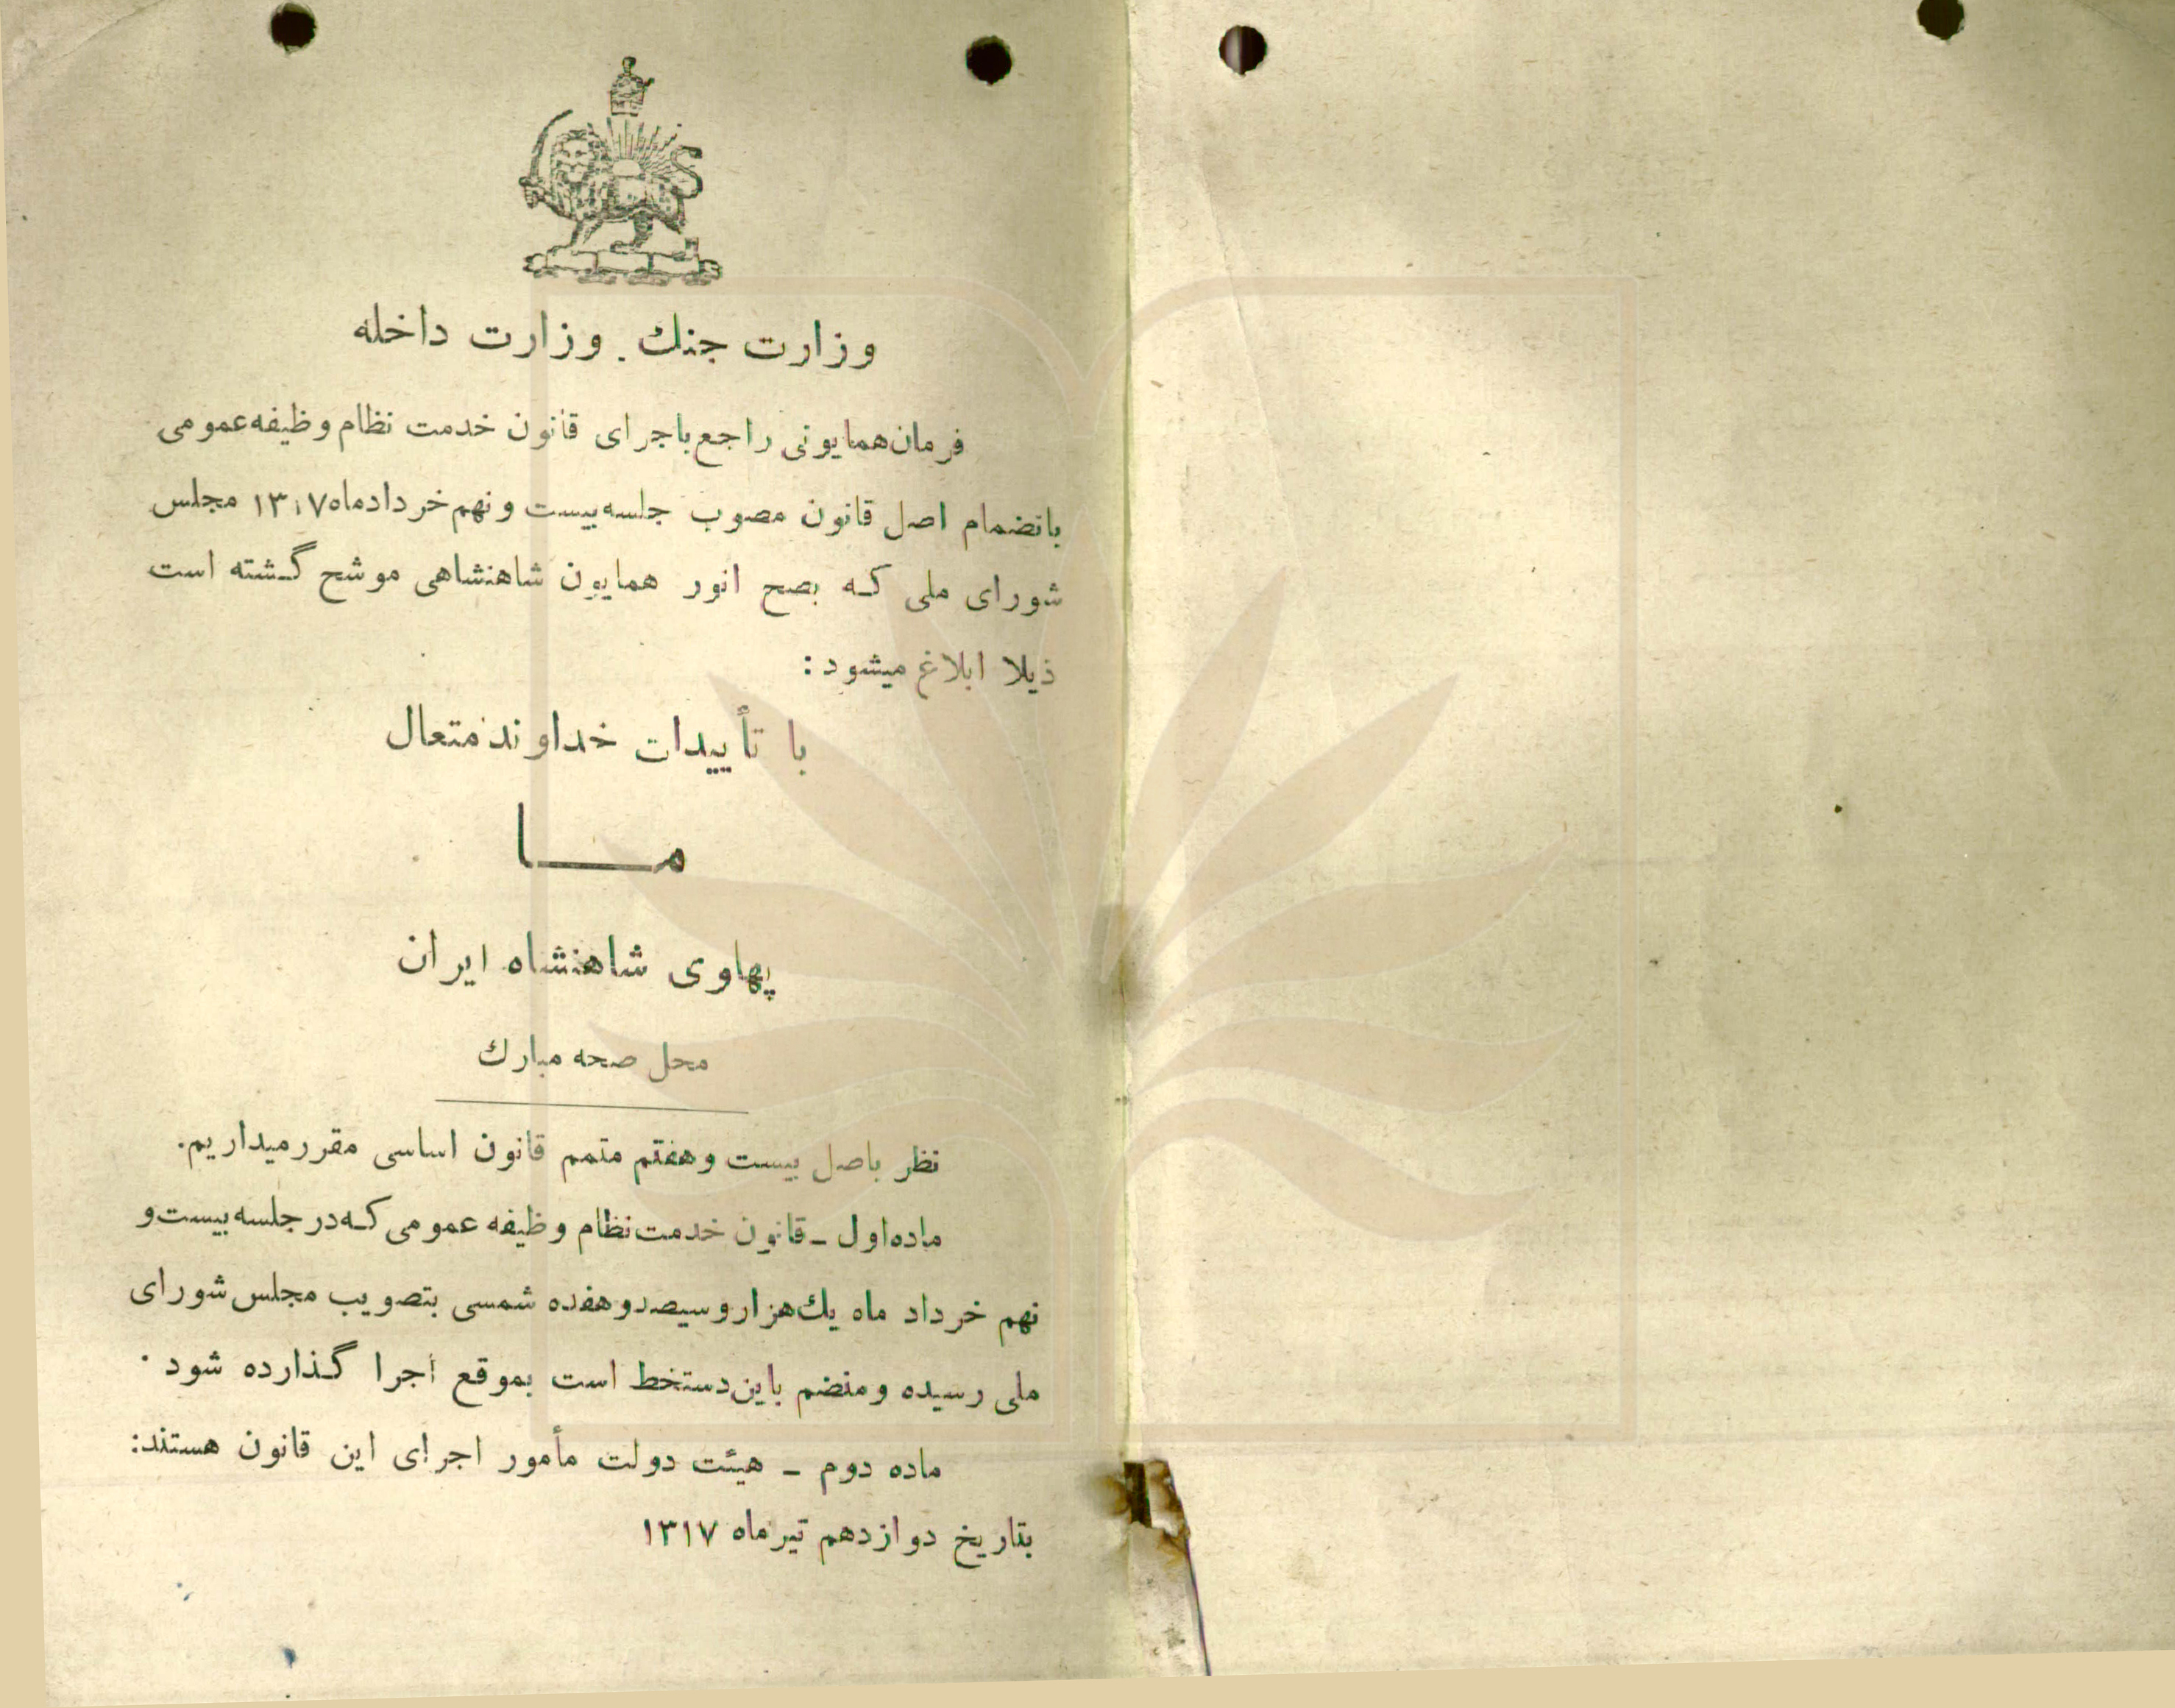 وزارت جنك . وزارت داخله
فرمان همایونی راجع باجرای قانون خدمت نظام وظیفه عمومی
بانضمام اصل قانون مصوب جلسه بیست و نهم خردادماه ۱۳۱۷ مجلس
شورای ملی که بصح انور همایون شاهنشاهی موشح گشته است
ذیلا ابلاغ میشود :
با تأییدات خداوند متعال
مــــا
پهلوی شاهنشاه ایران
محل صحه مبارك
نظر باصل بیست و هفتم متمم قانون اساسی مقرر میداریم.
ماده اول ـ قانون خدمت نظام وظیفه عمومی که در جلسه بیست و
نهم خرداد ماه یك هزار و سیصد و هفده شمسی بتصویب مجلس شورای
ملی رسیده و منضم باین دستخط است بموقع اجرا گذارده شود .
ماده دوم ـ هیئت دولت مأمور اجرای این قانون هستند:
بتاریخ دوازدهم تیرماه ۱۳۱۷